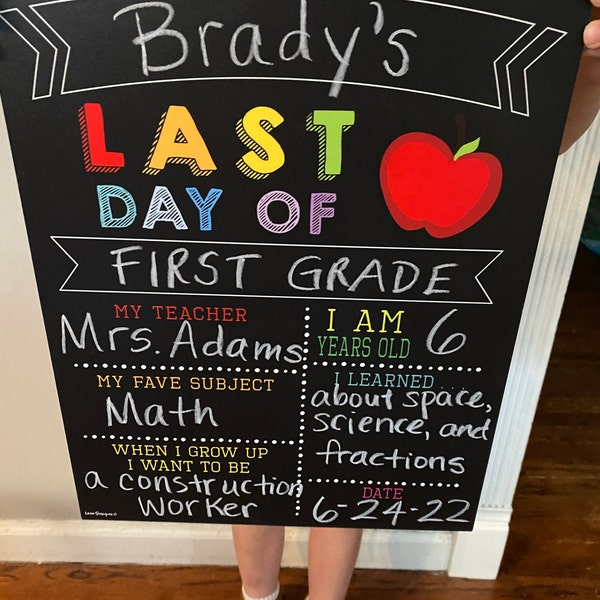 Brady's
LAST
DAY OF
FIRST GRADE
MY TEACHER
Mrs. Adams
I AM
YEARS OLD 6
MY FAVE SUBJECT
Math
I LEARNED...
about space,
science, and
fractions
WHEN I GROW UP
I WANT TO BE
a construction
worker
DATE
6-24-22